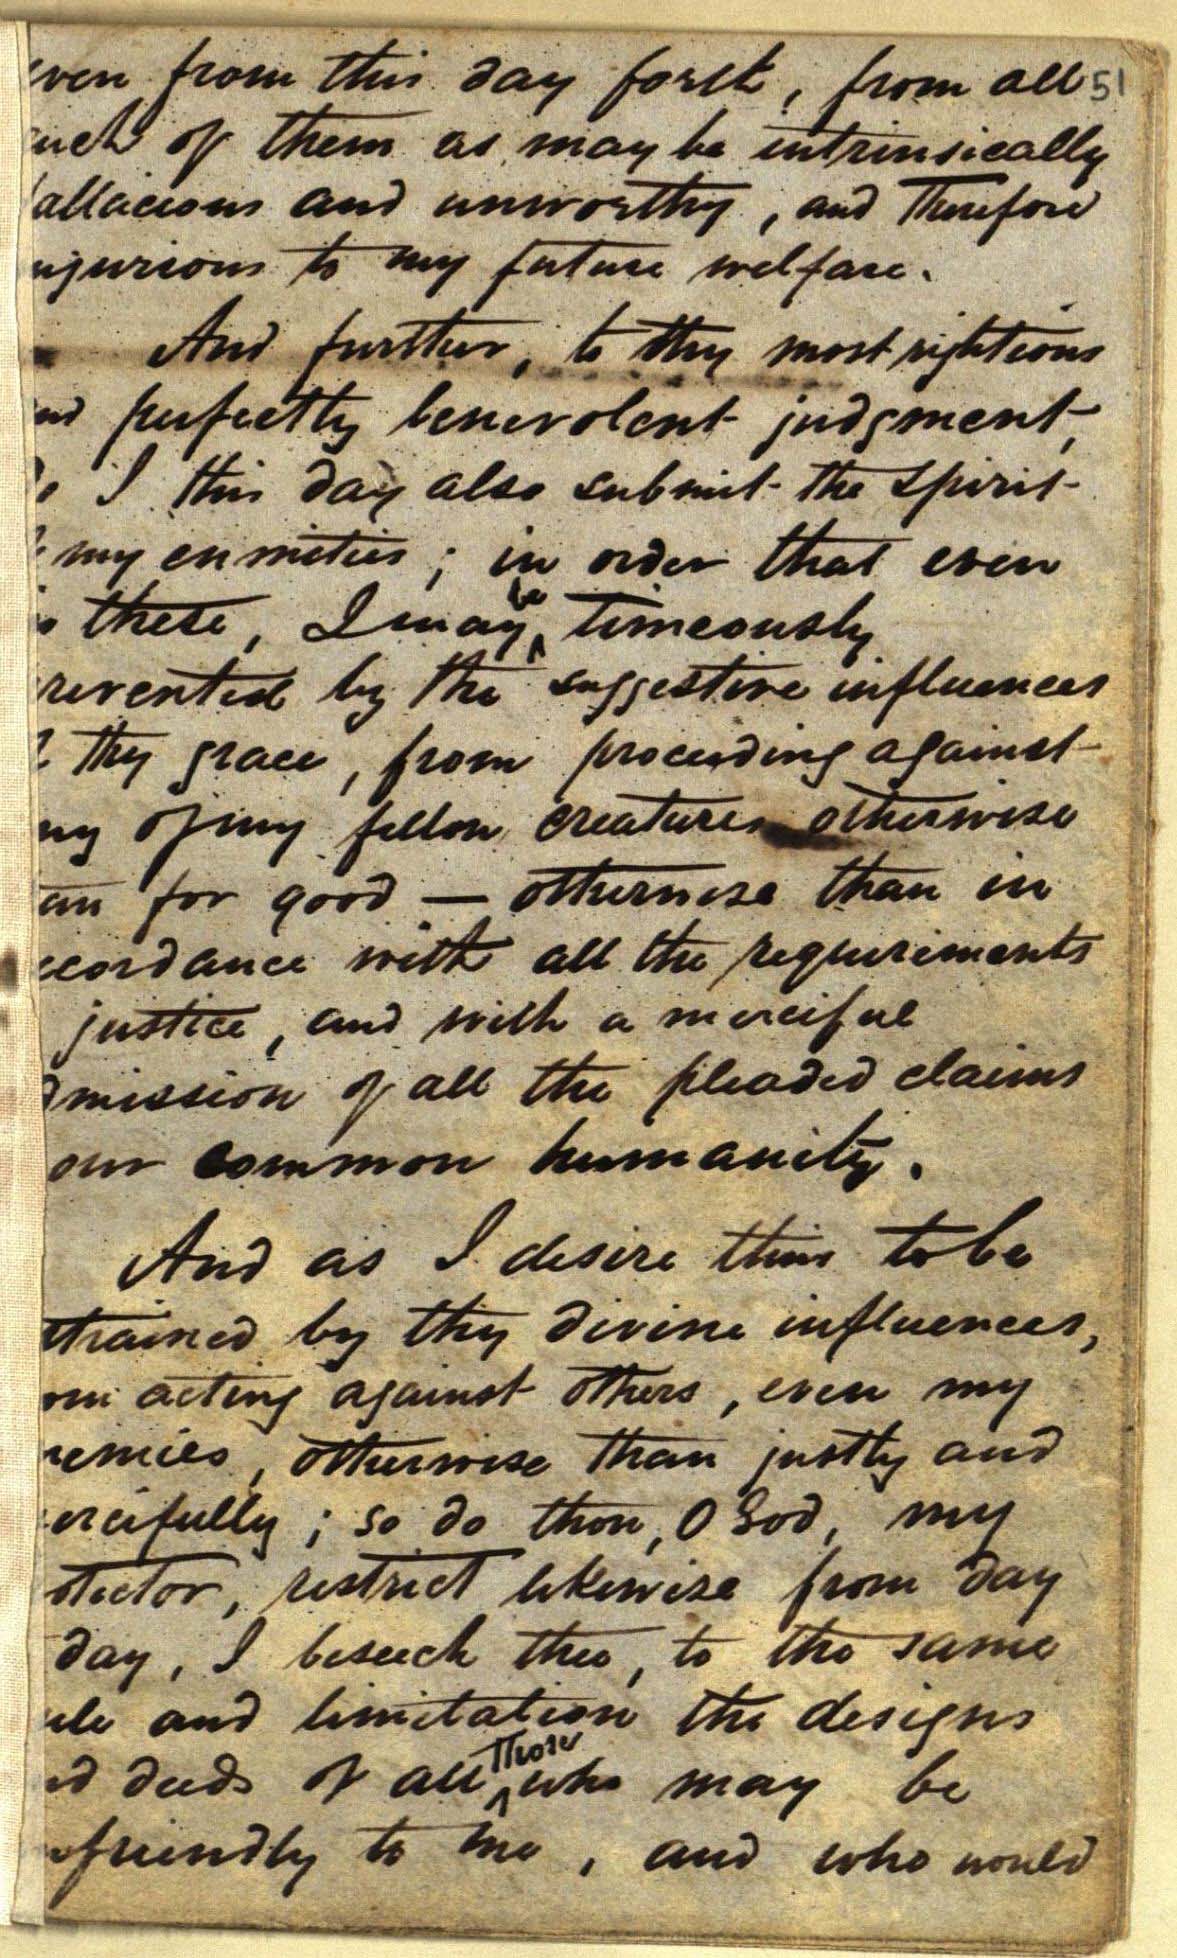 even from this day forth, from all 51
such of them as may be intrinsically
fallacious and unworthy, and Therefore
injurious to my future welfare.
And further, to thy most rightious
and perfectly benevolent judgment,
do I this day also submit the spirit
of my enmities; in order that even
in these, I may be timeously
prevented by the suggestive influences
of thy grace, from proceeding against
any of my fellow creatures otherwise
than for good — otherwise than in
accordance with all the requirements
justice, and with a merciful
admission of all the pleaded claims
our common humanity.
And as I desire thus to be
strained by thy divine influences,
from acting against others, even my
enemies, otherwise than justly and
mercifully; so do thou, O God, my
otector, restrict likewise from day
day, I beseech thee, to the same
rule and limitation the designs
and deeds of all those who may be
nfriendly to me, and who would